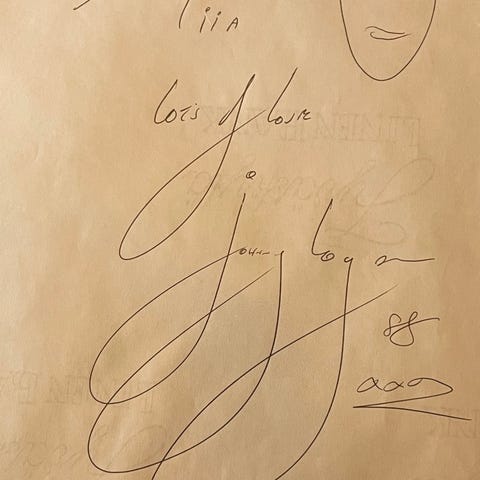 TiiA
Lots of Love
Johnny Logan
88
xxx